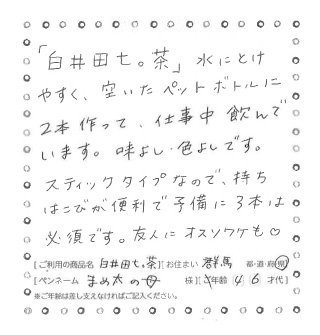 「白井田七。茶」水にとけ
やすく、空いたペットボトルに
2本作って、仕事中飲んで
います。味よし・色よしです。
スティックタイプなので、持ち
はこびが便利で予備に3本は
必須です。友人にオススケも♡
[ご利用の商品名 白井田七。茶][お住まい 群馬 都・道・府・県]
[ペンネーム まめ大の母 様][ご年齢 46 才代]
※ご年齢は差し支えなければご記入ください。